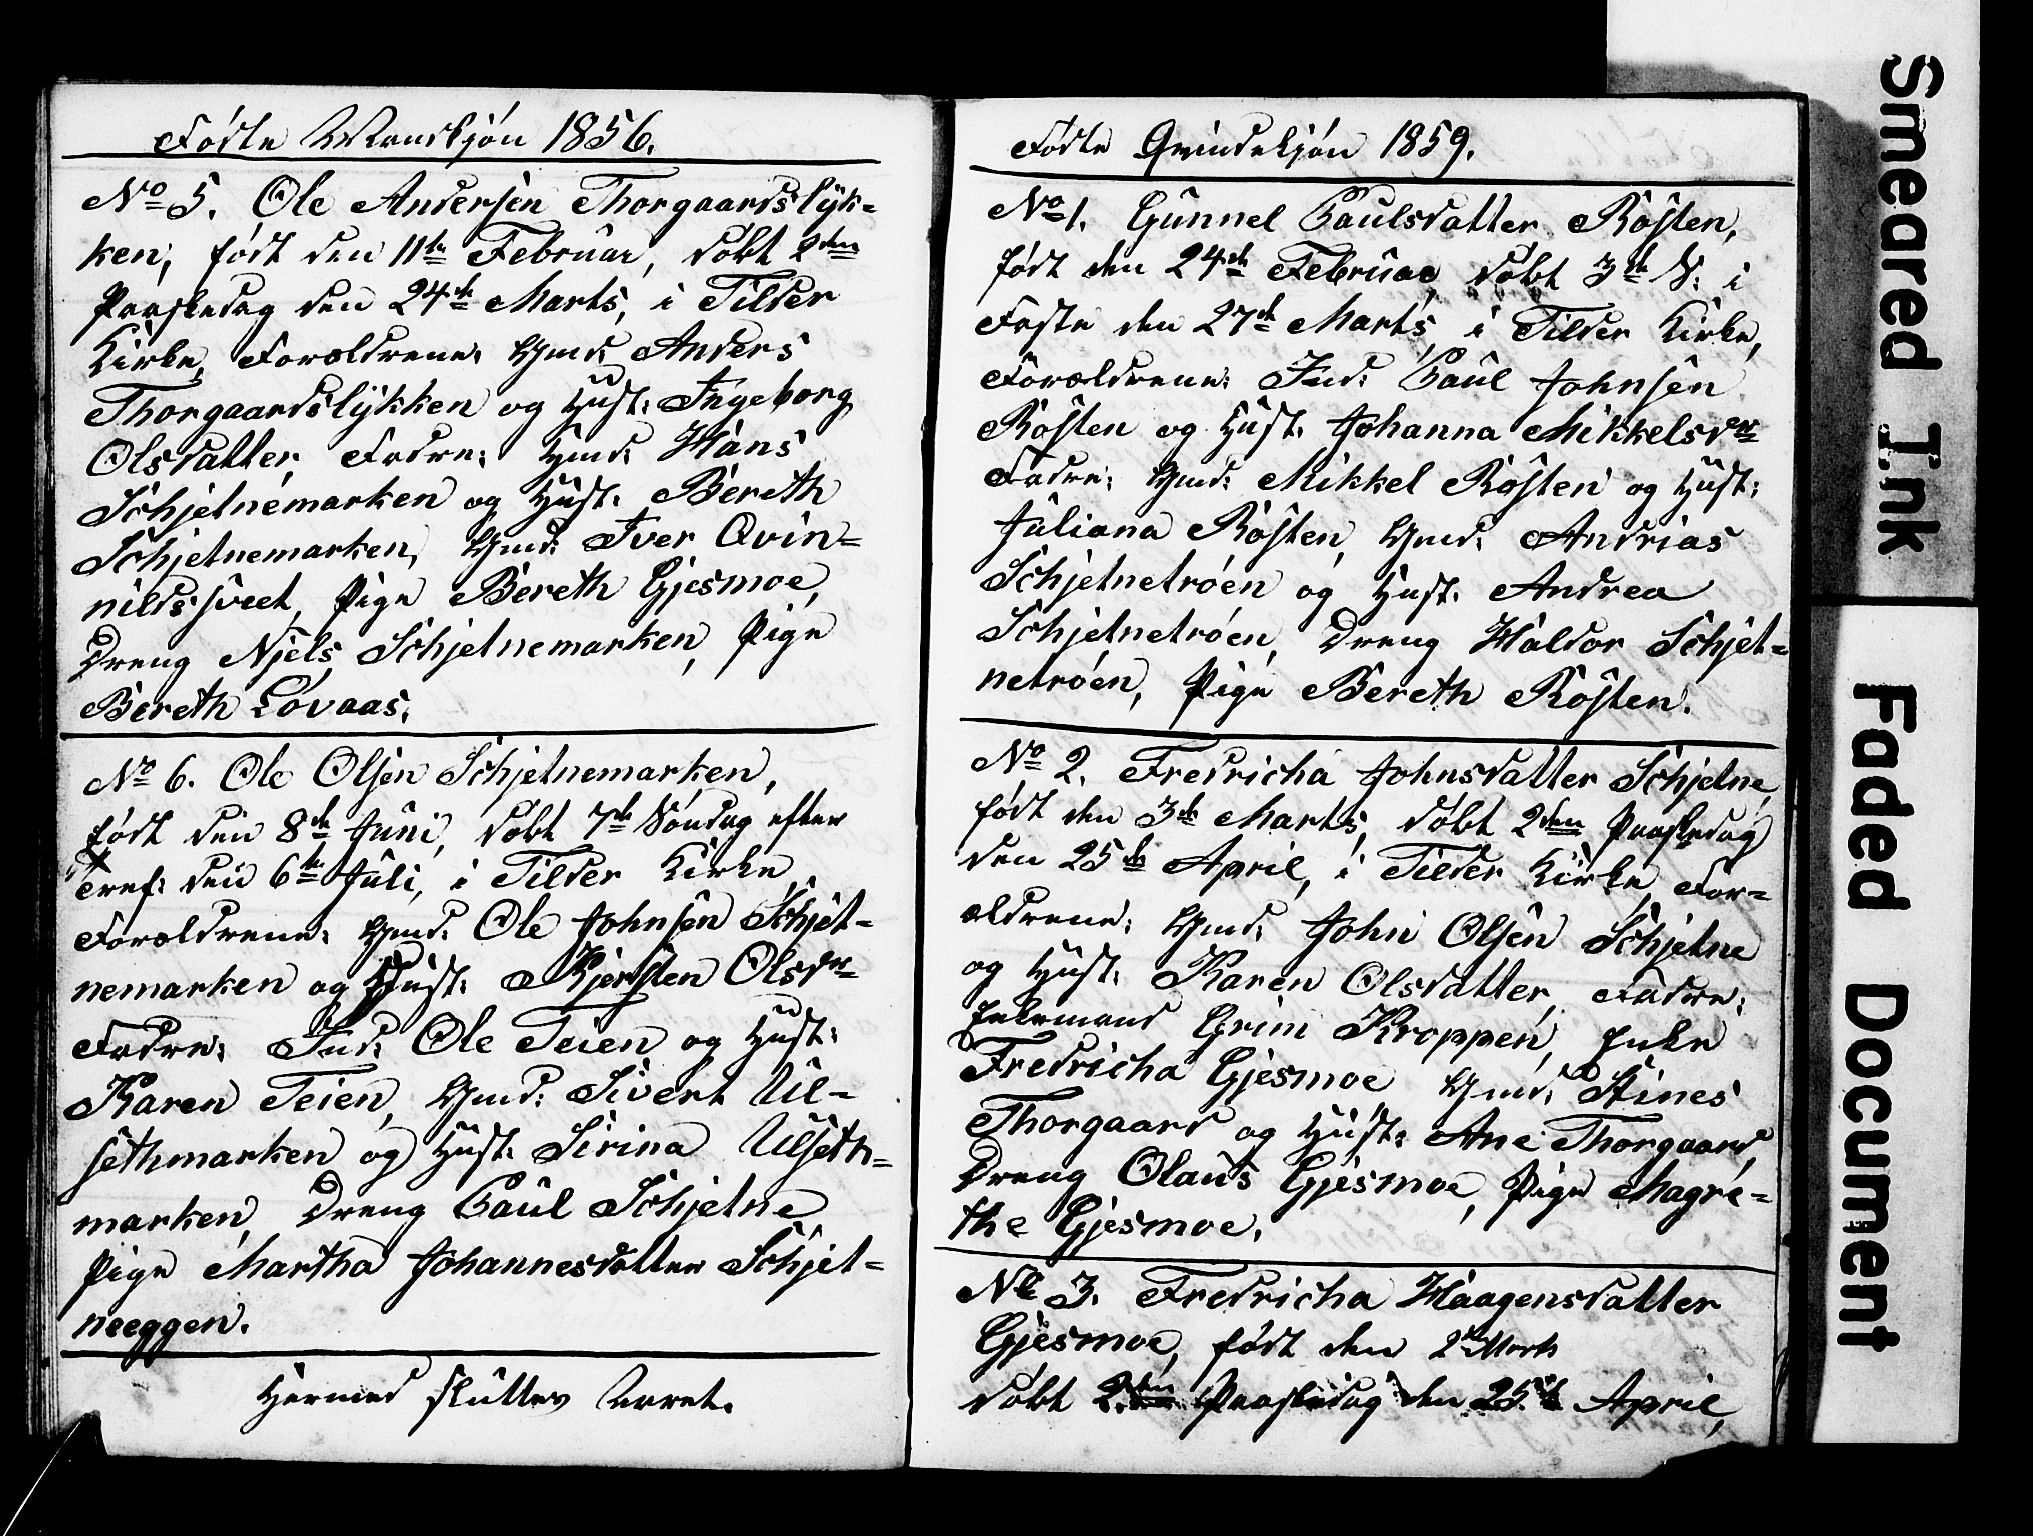 Fødte Mandkjøn 1856.
No 5. Ole Andersen Thorgaardslyk-
ken, født den 11te Februar, døbt 2den
Paaskedag den 24de Marts, i Tilder
Kirke, Forældrene: Gmd: Anders
Thorgaardslykken og Hust: Ingeborg
Olsdatter, Fadre: Gmd: Hans
Schjetnemarken og Hust: Bereth
Schjetnemarken, Gmd: Iver Qvin-
nildssveet, Pige Bereth Gjesmoe,
Dreng Njels Schjetnemarken, Pige
Bereth Løvaas.
No 6. Ole Olsen Schjetnemarken,
født den 8de Juni, døbt 7de Søndag efter
Tref: den 6te Juli, i Tilder Kirke
Forældrene: Gmd: Ole Johnsen Schjet-
nemarken og Hust: Kjersten Olsdr
Fadre: Ind: Ole Teien og Hust:
Karen Teien, Gmd: Sivert Uls-
sethmarken og Hust: Sirina Ulseth-
marken, Dreng Paul Schjetne
Pige Martha Johannesdatter Schjet-
neeggen.
Hermed sluttes Aaret.
Fødte Qvindekjøn 1859.
No 1. Gunnel Paulsdatter Røsten,
født den 24de Februar døbt 3de S: i
Faste den 27de Marts, i Tilder Kirke,
Forældrene: Ind: Paul Johnsen
Røsten og Hust: Johanna Mikkelsdr
Fadre: Gmd: Mikkel Røsten og Hust:
Juliana Røsten, Gmd: Andrias
Schjetnetrøen og Hust: Andrea
Schjetnetrøen, Dreng Haldor Schjet-
netrøen, Pige Bereth Røsten.
No 2. Fredricha Johnsdatter Schjetne,
født den 3de Marts, døbt 2den Paaskedag
den 25de April, i Tilder Kirke, For-
ældrene: Gmd: John Olsen Schjetne
og Hust: Karen Olsdatter, Fadre:
Enkemand Grim Kroppen, Enke
Fredricha Gjesmoe Gmd: Stines
Thorgaard og Hust: Ane Thorgaard,
Dreng Olaus Gjesmoe, Pige Magre-
the Gjesmoe.
No 3. Fredricha Haagensdatter
Gjesmoe, født den 2de Marts
døbt 2den Paaskedag den 25de April,
Smeared Ink
Faded Document